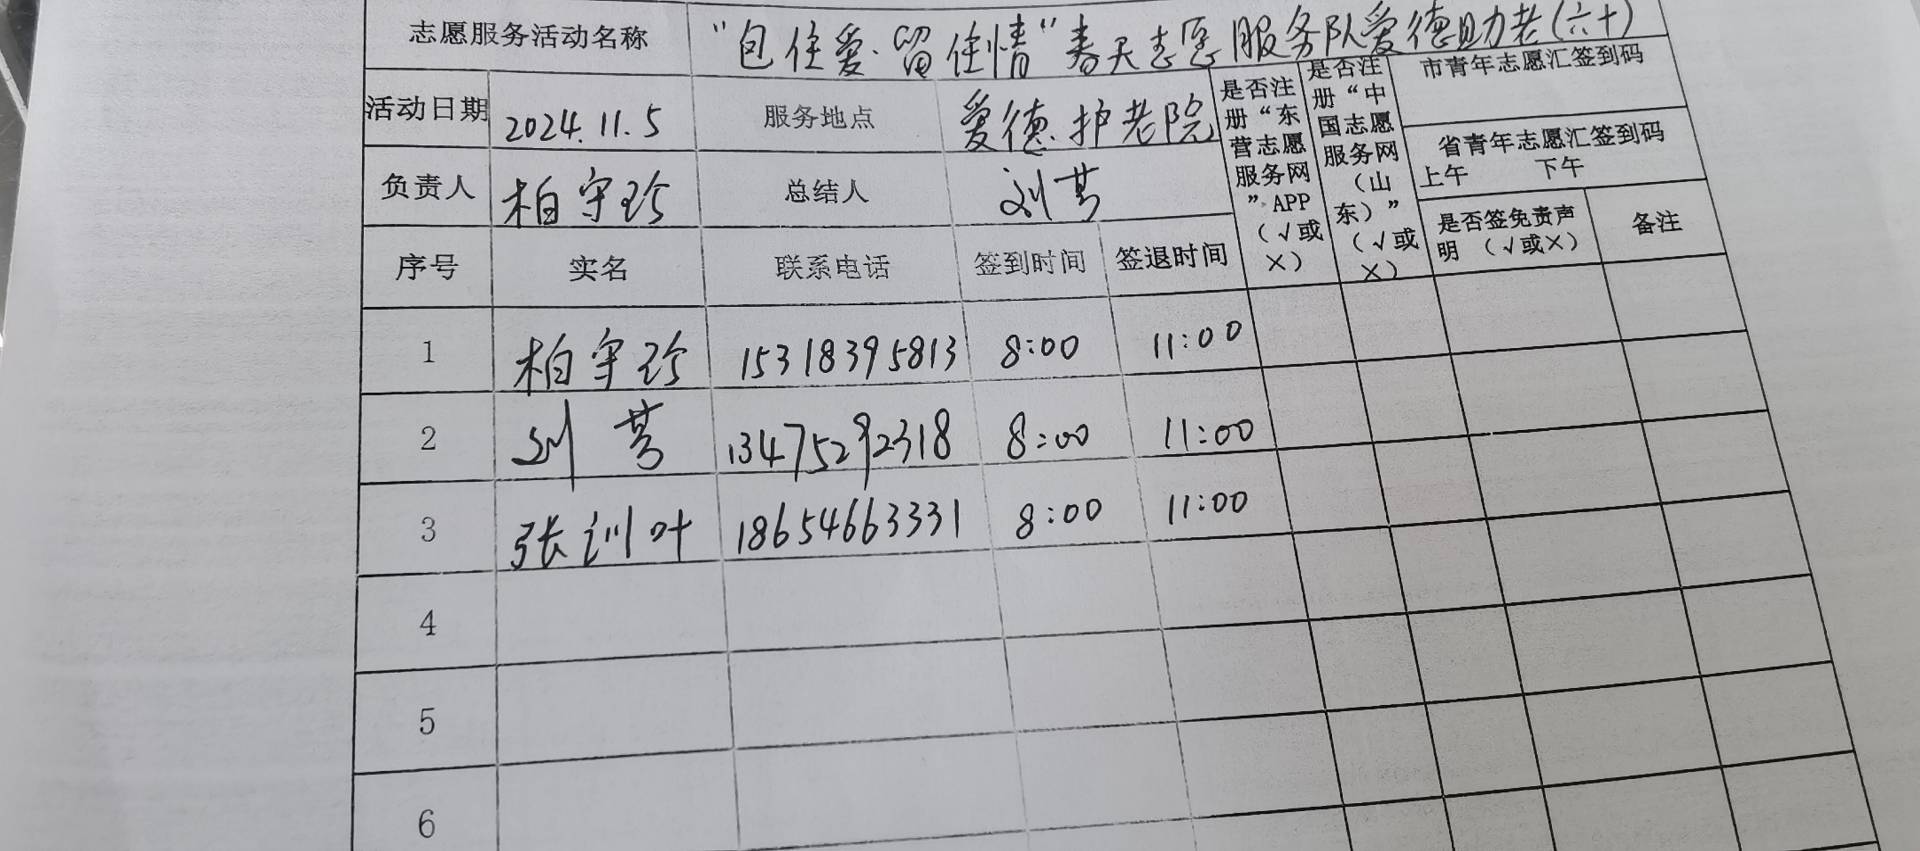 志愿服务活动名称 “包住爱·留住情”春天志愿服务队爱德助老(六十)
活动日期 2024.11.5 服务地点 爱德护老院 是否注册“东营志愿服务网”APP（√或×） 是否注册“中国志愿服务网（山东）”（√或×） 市青年志愿汇签到码
省青年志愿汇签到码
上午 下午
负责人 柏守珍 总结人 刘芳
是否签免责声明（√或×） 备注
序号 实名 联系电话 签到时间 签退时间
1 柏守珍 15318395813 8:00 11:00
2 刘芳 13475292318 8:00 11:00
3 张训叶 18654663331 8:00 11:00
4
5
6